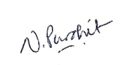 N. Purohit